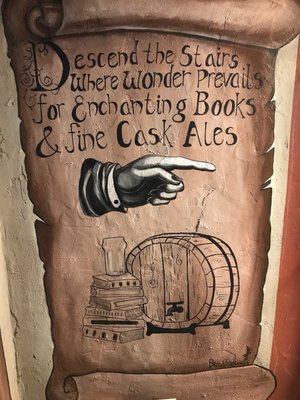 Descend the Stairs
Where Wonder Prevails
for Enchanting Books
& fine Cask Ales